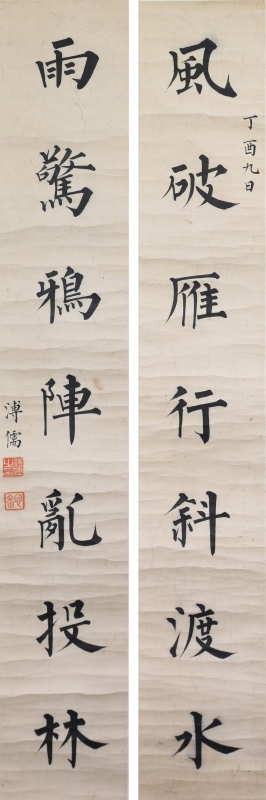 風破雁行斜渡水
丁酉九日
雨驚鴉陣亂投林
溥儒